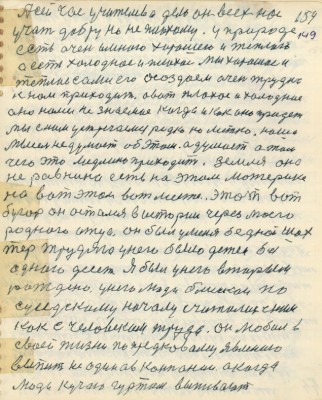 А сейчас учительево дело он всех нас 159
учат добру но не плохому. у природе 149
есть очен много хорошего и теплого
а есть холодное и плохое Мы хорошое и
теплые сами его создаем очен трудно
к ном приходит. а вот плохое и холодное
оно нами не знаемые Когда и как оно придет
Мы с ним встречаемся редко но метко. наша
Мысля не думает об этом. а думает о том
чего это медлено приходит. Земля она
не равнина есть на этом материке
на вот этом вот месте. Это т вот
бугор он остался в истории через моего
родного отца. он был у меня бедной шах
тер трудяго у него было детей бы
одного десет. Я был у него вторым
рожденой. у него люди близкаи по
суседскому началу считались с ним
как с человеком труда. он любил в
своей жизни по предковому явлению
выпит не один а в компании. а когда
люди кучаю гуртом выпивают